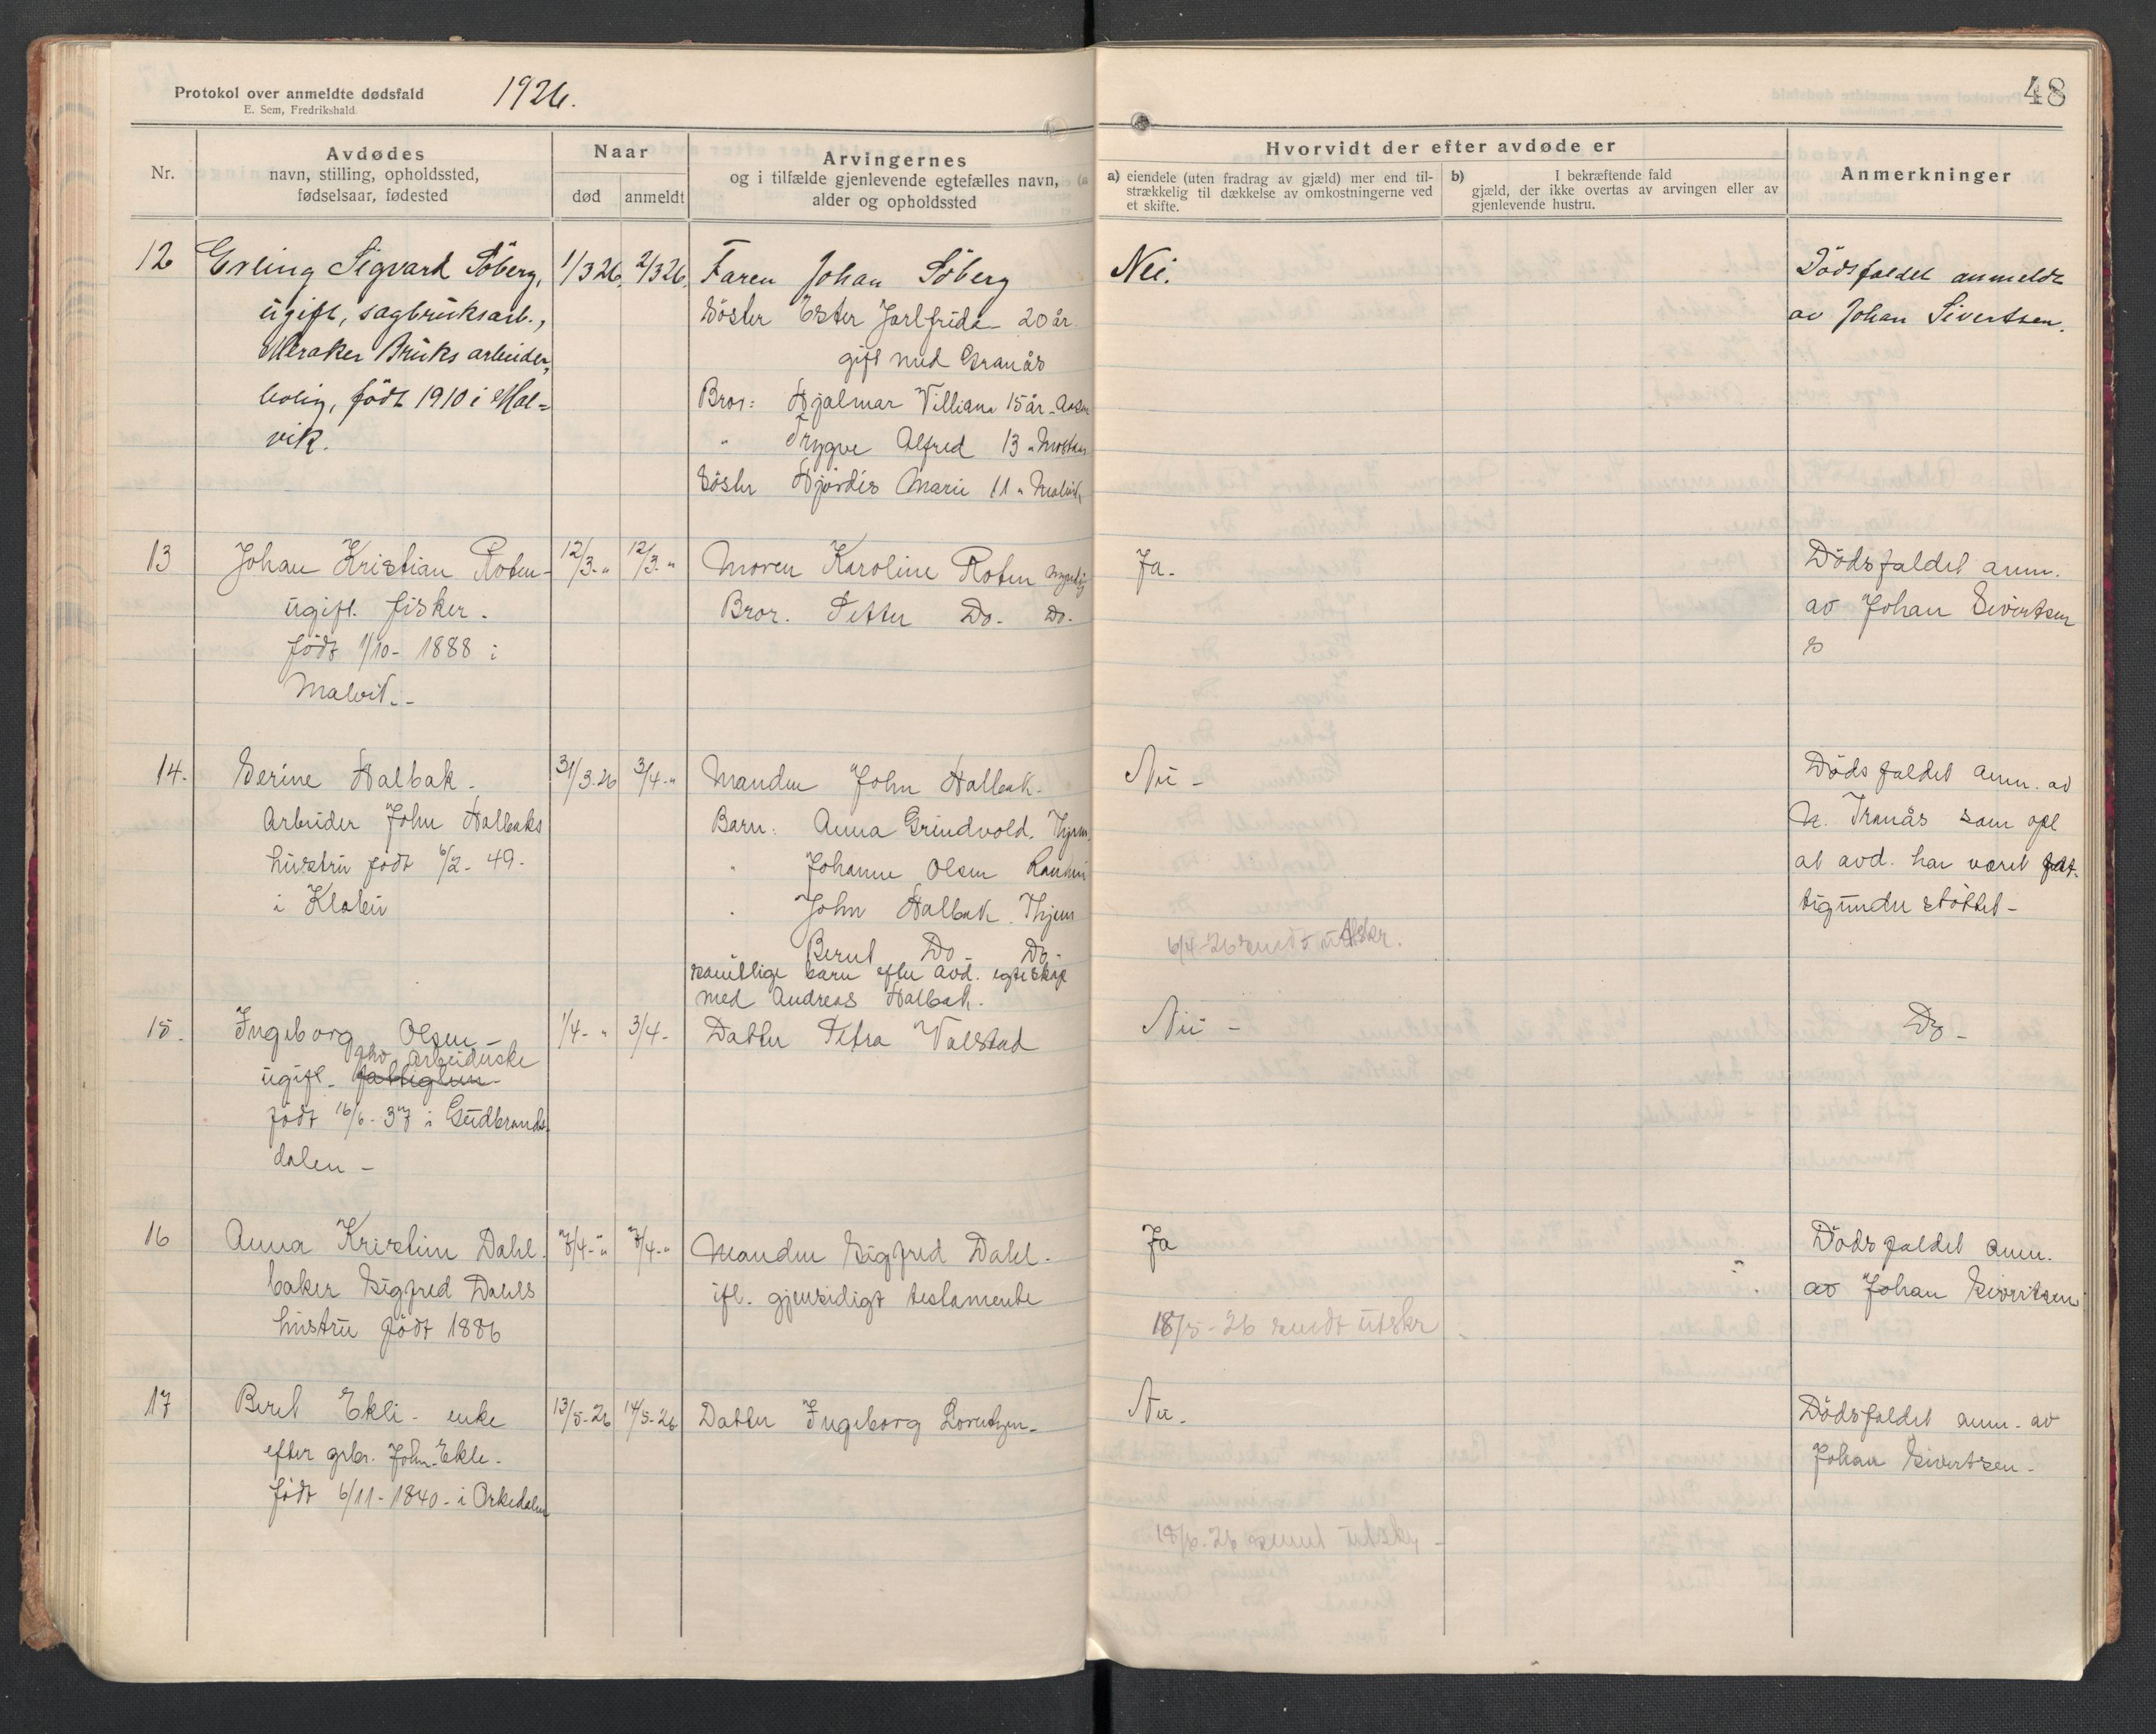 Protokol over anmeldte dødsfald
E. Sem, Fredrikshald.
1926.
48
Nr.
Avdødes
navn, stilling, opholdssted,
fødselsaar, fødested
Naar
død
anmeldt
Arvingernes
og i tilfælde gjenlevende egtefælles navn,
alder og opholdssted
Hvorvidt der efter avdøde er
a) eiendele (uten fradrag av gjæld) mer end til-
strækkelig til dækkelse av omkostningerne ved
et skifte.
b) I bekræftende fald
gjæld, der ikke overtas av arvingen eller av
gjenlevende hustru.
Anmerkninger
12
Erling Sigvard Söberg,
ugift, sagbruksarb.,
Meraker Bruks arbeider,
bolig, födt 1910 i Mal=
vik.
1/3 26.
2/3 26.
Faren Johan Söberg
Söster Ester Jarlfrida 20 år.
gift med Granås
Bror: Hjalmar Villiam 15 år
" Trygve Alfred 13 "
Söster Hjördis Marie 11 " Malvik
Nei.
Dödsfaldet anmeldt
av Johan Sivertsen.
13
Johan Kristian Roten-
ugift. fisker.
födt 1/10- 1888 i
Malvik.-
12/3- "
12/3- "
Moren Karoline Roten
Bror. Petter Do. Do.
Ja-
Dödsfaldet anm.
av Johan Sivertsen
14.
Serine Halbak.
Arbeider John Halbaks
hustru födt 6/2- 49-
i Klæbu
31/3-26
3/4- "
Manden John Halbak-
Barn: Anna Grindvold.
" Johanne Olsen
" John Halbak.
" Bernt Do- Do-
samtlige barn efter avd. egteskap
med Andreas Halbak.
Nei -
6/4-26 sendt utskr.
Döds faldet anm. av
N. Tranås som opl
at avd. har været fat-
tigunderstöttet-
15.
Ingeborg Olsen-
ugift. fattiglem
fhv. arbeiderske
födt 16/6- 37 i Gudbrands
dalen-
1/4- "
3/4-
Datter Petra Valstad
Nei -
Do-
16
Anna Kristine Dahl.
baker Sigfred Dahls
hustru födt 1886
7/4- "
7/4- "
Manden Sigfred Dahl-
ifl. gjensidigt testamente
Ja
18/5-26 sendt utskr
Dödsfaldet anm.
av Johan Sivertsen
17
Beret Ekli- enke
efter grbr. John Ekle-
födt 6/11- 1840- i Orkedalen
13/5-26
14/5-26
Datter Ingeborg Lorentzen-
Nei-
18/5-26 sendt utskr -
Dödsfaldet anm. av
Johan Sivertsen-